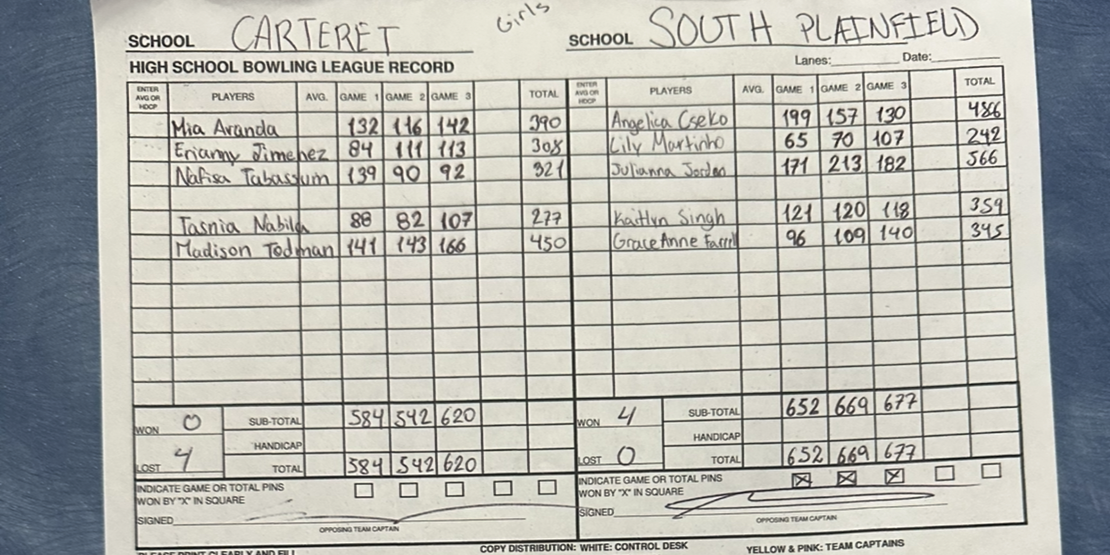 Girls
SCHOOL CARTERET SCHOOL SOUTH PLAINFIELD
HIGH SCHOOL BOWLING LEAGUE RECORD Lanes: Date:
ENTER AVG OR HDCP PLAYERS AVG. GAME 1 GAME 2 GAME 3 TOTAL ENTER AVG OR HDCP PLAYERS AVG. GAME 1 GAME 2 GAME 3 TOTAL
Mia Aranda 132 116 142 390 Angelica Cseko 199 157 130 486
Erianny Jimenez 84 111 113 308 Lily Martinho 65 70 107 242
Nafisa Tabassum 139 90 92 321 Julianna Jordan 171 213 182 566
Tasnia Nabila 88 82 107 277 Kaitlyn Singh 121 120 118 359
Madison Todman 141 143 166 450 GraceAnne 96 109 140 345
WON 0 SUB-TOTAL 584 542 620 WON 4 SUB-TOTAL 652 669 677
HANDICAP HANDICAP
LOST 4 TOTAL 584 542 620 LOST 0 TOTAL 652 669 677
INDICATE GAME OR TOTAL PINS INDICATE GAME OR TOTAL PINS
WON BY "X" IN SQUARE WON BY "X" IN SQUARE X X X
SIGNED SIGNED
OPPOSING TEAM CAPTAIN OPPOSING TEAM CAPTAIN
PLEASE PRINT CLEARLY AND FILL COPY DISTRIBUTION: WHITE: CONTROL DESK YELLOW & PINK: TEAM CAPTAINS